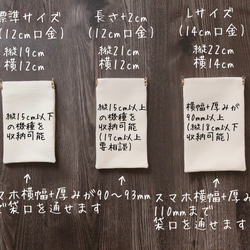 標準サイズ
(12cm口金)
縦19cm
横12cm
縦15cm以下
の機種を
収納可能
長さ+2cm
(12cm口金)
縦21cm
横12cm
縦15cm以上
の機種を
収納可能
(17cm以上
要相談)
スマホ横幅+厚みが90〜93mm
で袋口を通せます
Lサイズ
(14cm口金)
縦22cm
横14cm
横幅+厚み
90mm以上
(縦18cm以下
収納可能)
スマホ横幅+厚みが
110mmまで
袋口を通せます